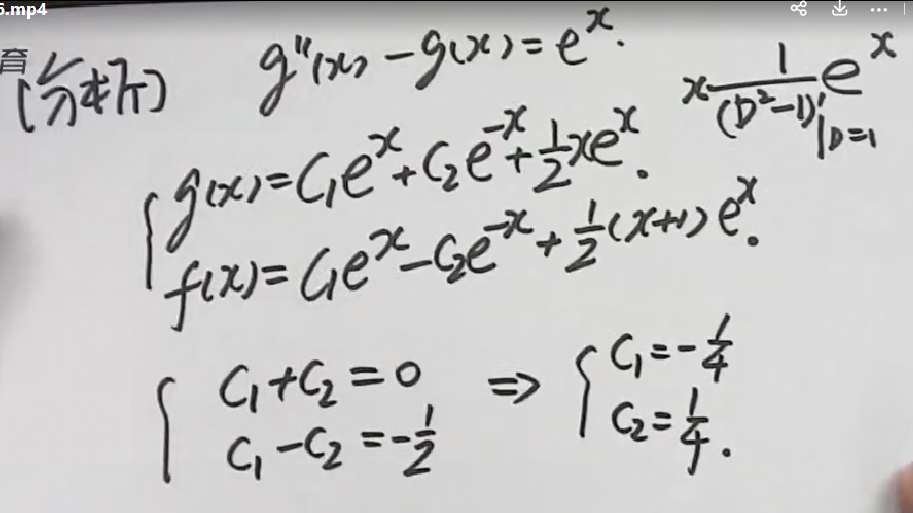 5.mp4
育
[分析] g''(x) - g(x) = e^x.
x 1/(D²-1)' e^x |D=1
{ g(x) = C₁e^x + C₂e^-x + 1/2 xe^x.
f(x) = C₁e^x - C₂e^-x + 1/2 (x+1) e^x.
{ C₁ + C₂ = 0 ⇒ { C₁ = -1/4
C₁ - C₂ = -1/2 C₂ = 1/4.